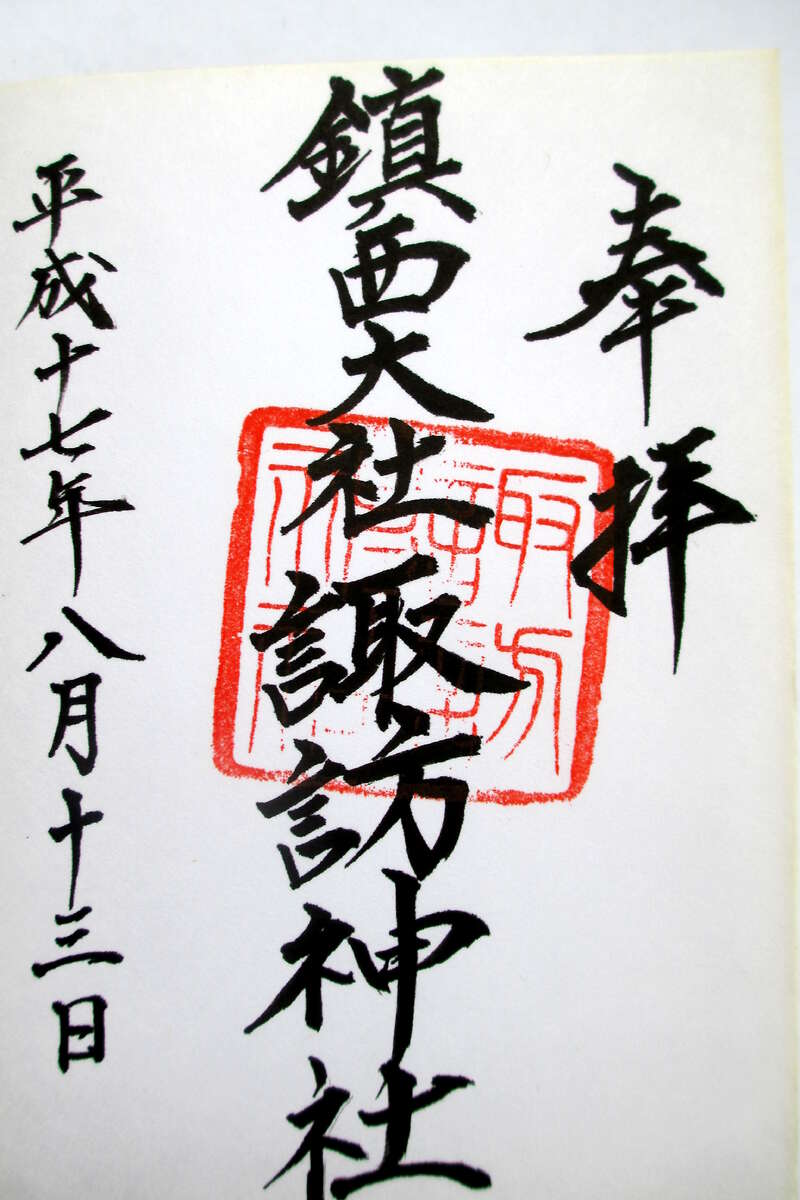 奉拝
鎮西大社諏訪神社
平成十七年八月十三日